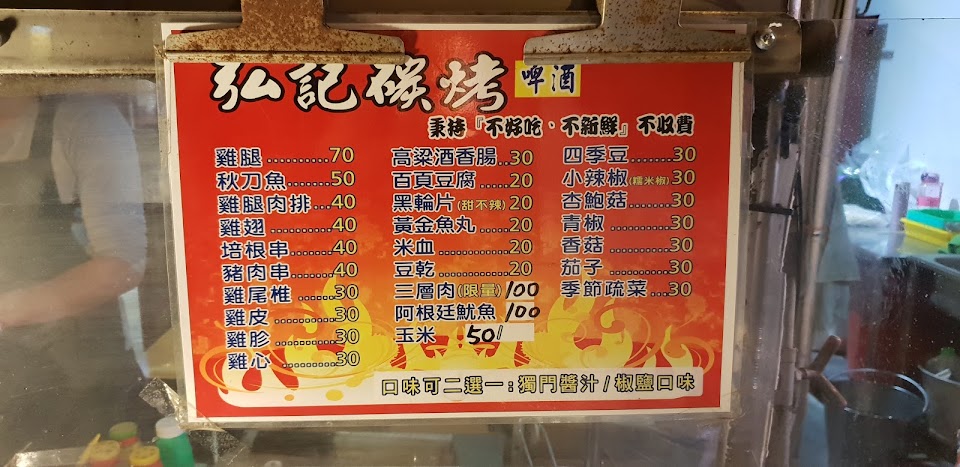 弘記碳烤 啤酒
秉持『不好吃、不新鮮』不收費
雞腿..........70
秋刀魚........50
雞腿肉排...40
雞翅..........40
培根串.......40
豬肉串.......40
雞尾椎.......30
雞皮..........30
雞胗..........30
雞心..........30
高粱酒香腸..30
百頁豆腐......20
黑輪片(甜不辣)20
黃金魚丸......20
米血...........20
豆乾...........20
三層肉(限量)100
阿根廷魷魚 100
玉米 50/
四季豆.......30
小辣椒(糯米椒)30
杏鮑菇.......30
青椒..........30
香菇..........30
茄子..........30
季節疏菜...30
口味可二選一:獨門醬汁/椒鹽口味